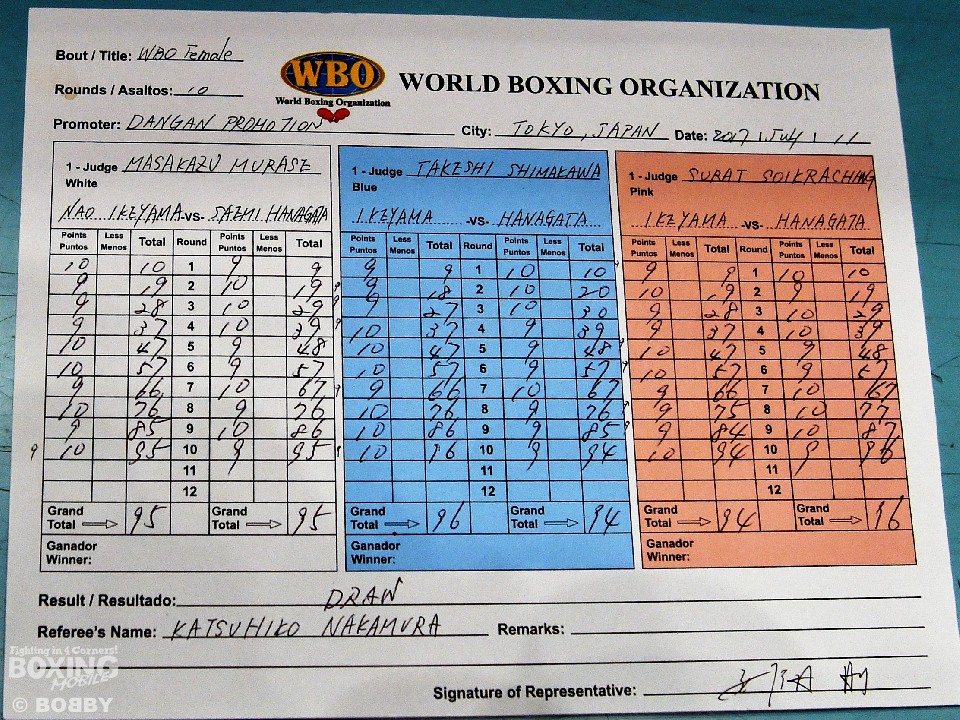 Bout / Title: WBO Female
Rounds / Asaltos: 10
WBO
World Boxing Organization
WORLD BOXING ORGANIZATION
Promoter: DANGAN PROMOTION City: TOKYO, JAPAN Date: 2017, July, 11
1 - Judge MASAKAZU MURASE 1 - Judge TAKESHI SHIMAKAWA 1 - Judge SURAT SOIKRACHANG
White Blue Pink
NAO IKEYAMA -VS- SAEMI HANAGATA IKEYAMA -VS- HANAGATA IKEYAMA -VS- HANAGATA
Points Puntos Less Menos Total Round Points Puntos Less Menos Total Points Puntos Less Menos Total Round Points Puntos Less Menos Total Points Puntos Less Menos Total Round Points Puntos Less Menos Total
10 10 1 9 9 9 9 1 10 10 9 9 1 10 10
9 19 2 10 19 9 18 2 10 20 10 19 2 9 19
9 28 3 10 29 9 27 3 10 30 9 28 3 10 29
9 37 4 10 39 10 37 4 9 39 9 37 4 10 39
10 47 5 9 48 10 47 5 9 48 10 47 5 9 48
10 57 6 9 57 10 57 6 9 57 10 57 6 9 57
9 66 7 10 67 9 66 7 10 67 9 66 7 10 67
10 76 8 9 76 10 76 8 9 76 9 75 8 10 77
9 85 9 10 86 10 86 9 9 85 9 84 9 10 87
10 95 10 9 95 10 96 10 9 94 10 94 10 9 96
11 11 11
12 12 12
Grand Total 95 Grand Total 95 Grand Total 96 Grand Total 94 Grand Total 94 Grand Total 96
Ganador Winner: Ganador Winner: Ganador Winner:
Result / Resultado: DRAW
Referee's Name: KATSUHIKO NAKAMURA Remarks:
Signature of Representative:
Fighting in 4 Corners!
BOXING
MOBILE
© BOBBY